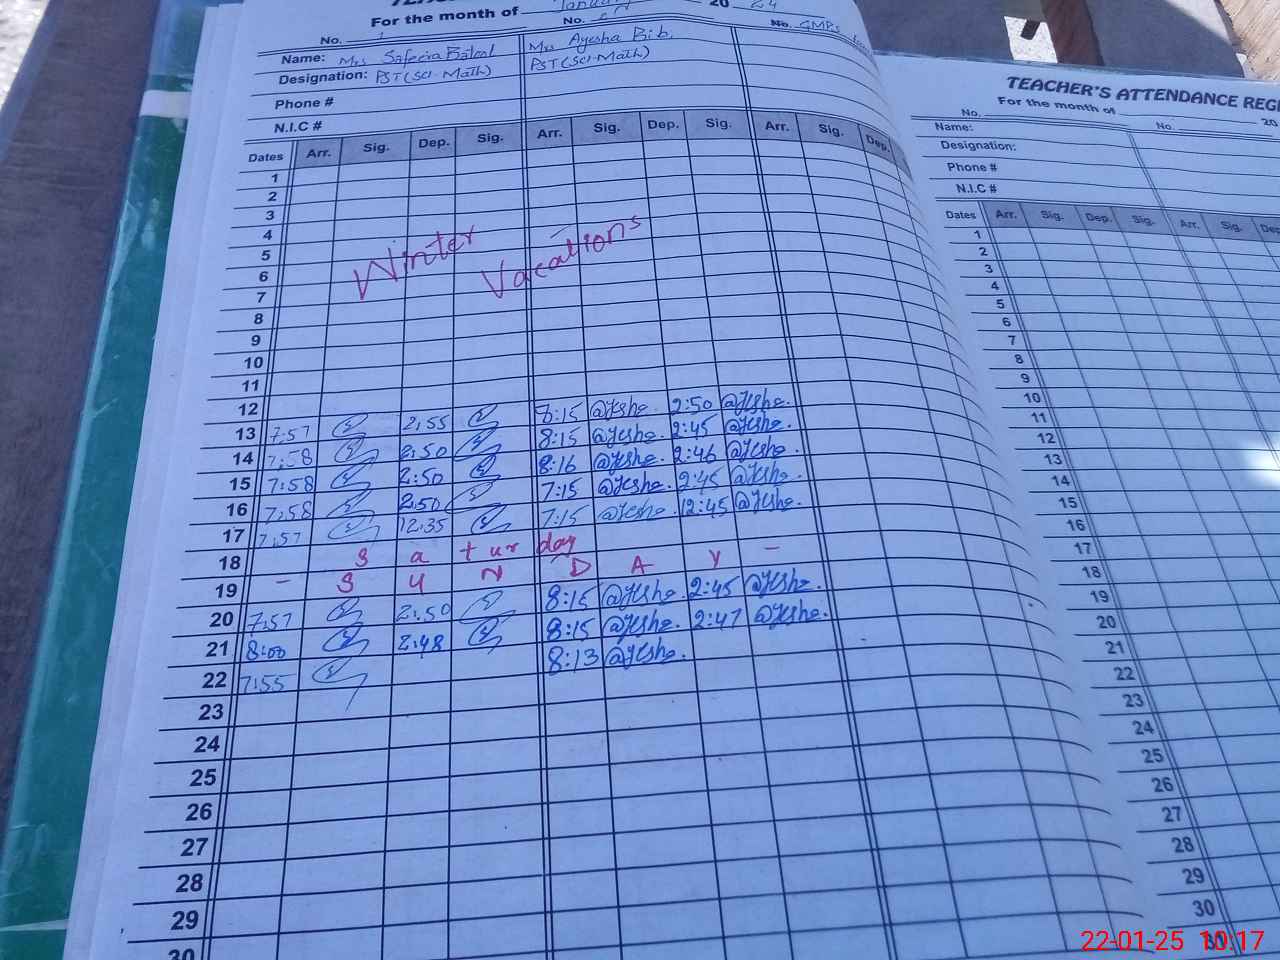 For the month of January 20 24
No. 1 No. No. GMPS
Name: Mrs Safeera Batool Mrs Ayesha Bibi
Designation: PST (Sci-Math) PST (Sci-Math)
Phone #
N.I.C #
Dates Arr. Sig. Dep. Sig. Arr. Sig. Dep. Sig. Arr. Sig. Dep.
1
2
3
4
5
6
Winter Vacations
7
8
9
10
11
12
13 7:57 2:55 8:15 @Yshe. 2:50 @Yshe.
14 7:58 2:50 8:15 @Yshe. 2:45 @Yshe.
15 7:58 2:50 8:16 @Yshe. 2:46 @Yshe.
16 7:58 2:50 7:15 @Yshe. 2:45 @Yshe.
17 7:57 12:35 7:15 @Yshe. 12:45 @Yshe.
18 S a t ur day
19 - S U N D A Y -
20 7:57 2:50 8:15 @Yshe. 2:45 @Yshe.
21 8:00 2:48 8:15 @Yshe. 2:47 @Yshe.
22 7:55 8:13 @Yshe.
23
24
25
26
27
28
29
30
TEACHER'S ATTENDANCE REGI
For the month of 20
No. No.
Name:
Designation:
Phone #
N.I.C #
Dates Arr. Sig. Dep. Sig. Arr. Sig. Dep
1
2
3
4
5
6
7
8
9
10
11
12
13
14
15
16
17
18
19
20
21
22
23
24
25
26
27
28
29
30
22-01-25 10:17